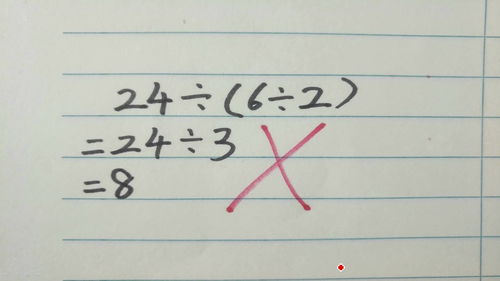 24÷(6÷2)
=24÷3
=8